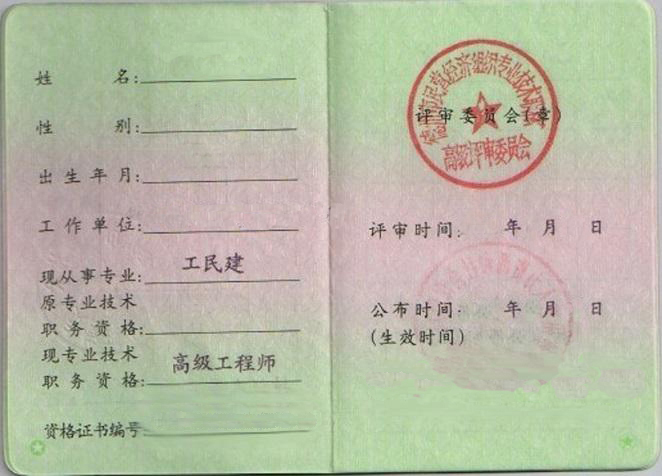 姓 名:
性 别:
出生年月:
工作单位:
现从事专业:
工民建
原专业技术
职务资格:
现专业技术
职务资格:
高级工程师
资格证书编号
民营经济组织专业技术
高级评审委员会
评审委员会(章)
评审时间: 年 月 日
公布时间: 年 月 日
(生效时间)